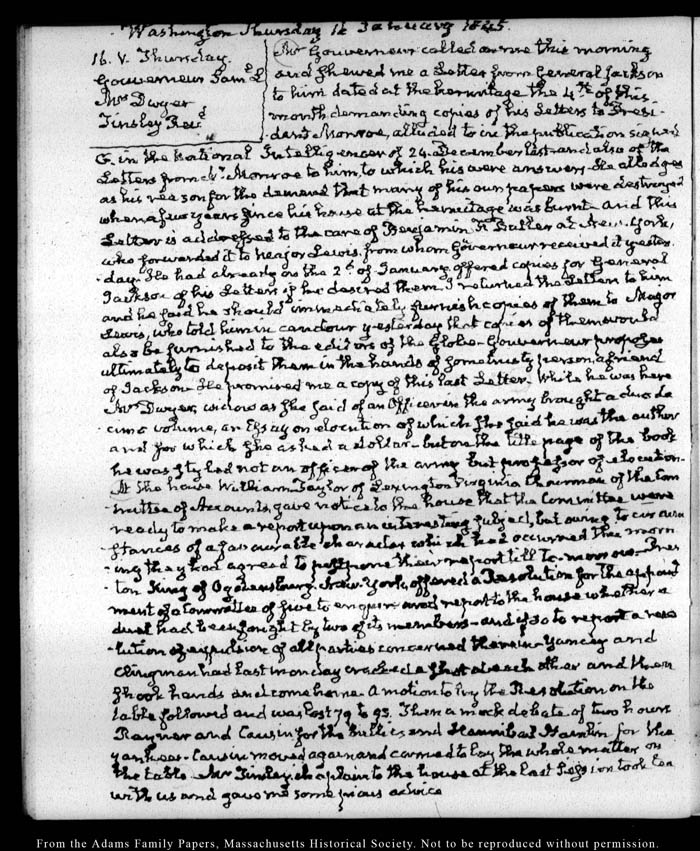 Washington Thursday 16 January 1845.
16. V. Thursday.
Gouverneur Saml. L
Mrs Dwyer
Tinsley Revd.
Mr Gouverneur called on me this morning
and shewed me a Letter from General Jackson
to him dated at the hermitage the 4th. of this
month demanding copies of his Letters to Presi-
dent Monroe, alluded to in the publication signed
G. in the National Intelligencer of 24. December last and also of the
Letters from Mr. Monroe to him, to which his were answers. He alledges
as his reason for the demand that many of his own papers were destroyed
when a few years since his house at the hermitage was burnt. And this
Letter is addressed to the care of Benjamin F. Butler at New-York,
who forwarded it to Major Lewis, from whom Gouverneur received it yester-
day. He had already on the 2d. of January offered copies for General
Jackson of his Letters if he desired them. I returned the Letter to him
and he said he should immediately furnish copies of them to Major
Lewis, who told him in candour yesterday that copies of them would
also be furnished to the editors of the Globe. Gouverneur proposes
ultimately to deposit them in the hands of some trusty person, a friend
of Jackson. He promised me a copy of this last Letter. While he was here
Mrs Dwyer, widow as she said of an Officer in the army brought a duode
cimo volume, an Essay on elocution of which she said he was the author
and for which she asked a dollar—but on the title page of the book
he was styled not an officer of the army but professor of elocution.
At the house William Taylor of Lexington Virginia Chairman of the Com
mittee of Accounts, gave notice to the house that the Committee were
ready to make a report upon an interesting subject, but owing to circum
stances of a favourable character which had occurred this morn-
ing they had agreed to postpone their report till to-morrow. Pres
ton King of Ogdensburg, New-York, offered a Resolution for the appoint
ment of a Committee of five to enquire and report to the house whether a
duel had been fought by two of its members—and if so to report a reso
lution of expulsion of all parties concerned therein—Yancey and
Clingman had last monday cracked a shot at each other and then
shook hands and come home. A motion to lay the Resolution on the
table followed and was lost 79 to 93. Then a mock debate of two hours
Rayner and Causin for the bullies and Hannibal Hamlin for the
yankees. Causin moved again and carried to lay the whole matter on
the table. Mr Tinsley chaplain to the house at the last Session took tea
with us and gave me some pious advice
From the Adams Family Papers, Massachusetts Historical Society. Not to be reproduced without permission.